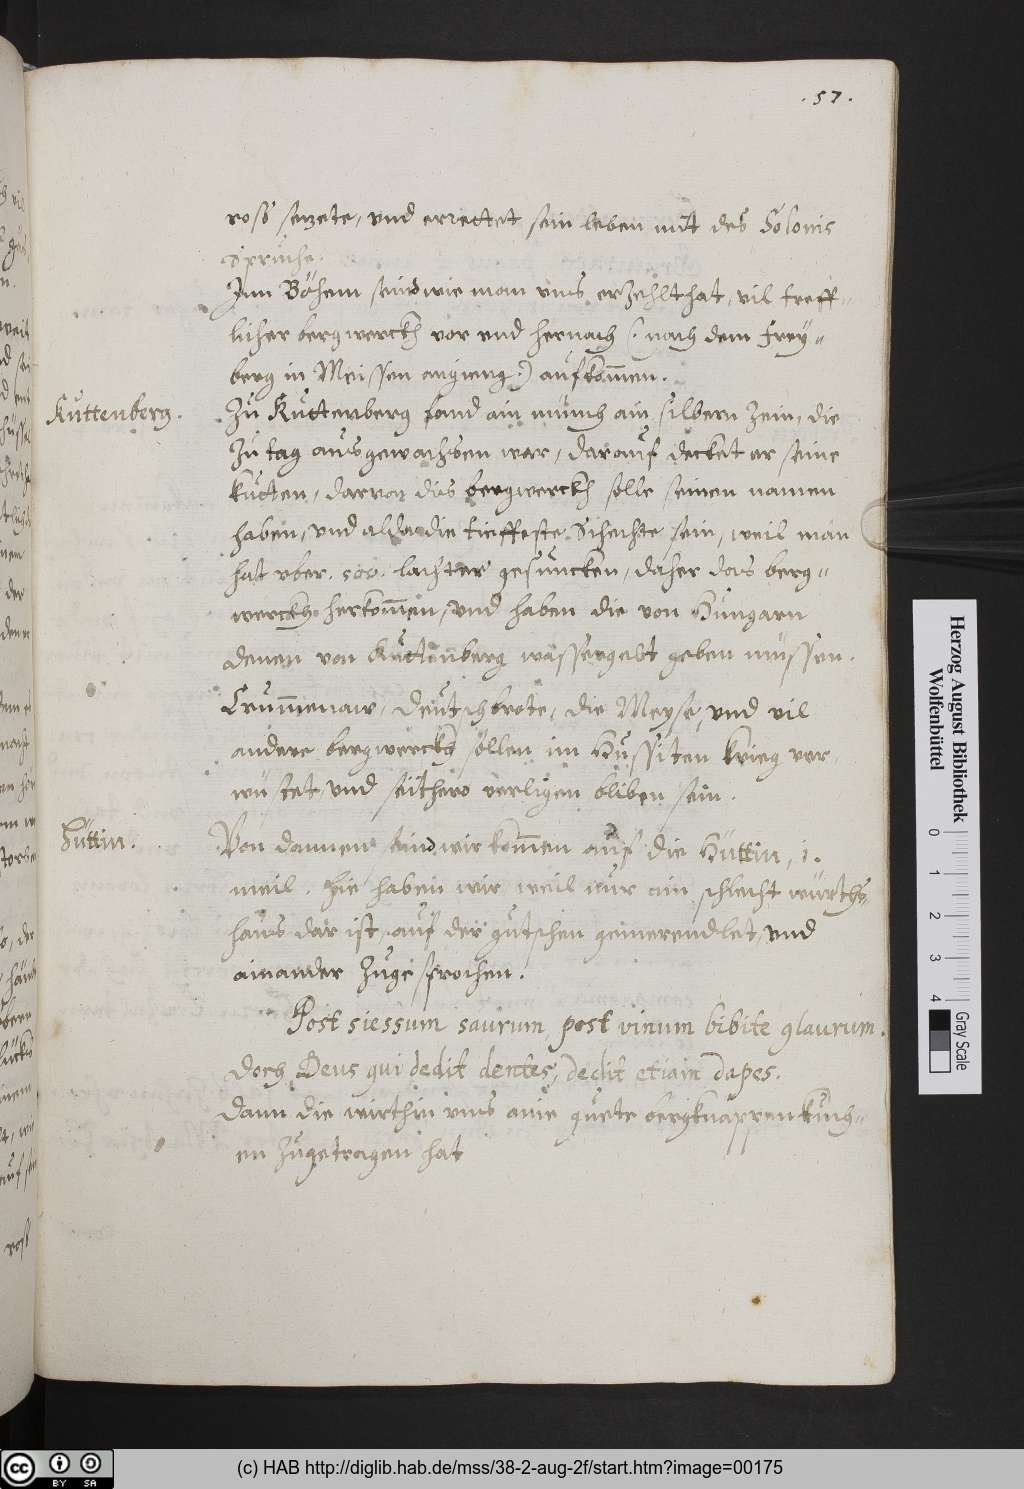 . 57 .
ross setzete, vnd errettet sein leben mit des Solonis
spruche.
Inn Böhem seind wie man vns erzehlt hat, vil treff-
licher bergwerckh vor vnd hernach (: nach dem Frey-
berg in Meissen angieng :) aufkom̄en.
Kuttenberg.
Zu Kuttenberg fand ain münch ain silbern Zein, die
Zu tag ausgewachsen war, darauf decket er seine
kutten, darvon dis bergwerckh solle seinen namen
haben, vnd alda die tieffeste Schechte sein, weil man
hat vber . 500 . lachter gesuncken, daher das berg-
werckh herkom̄en, vnd haben die von Hungarn
denen von Kuttenberg wassergelt geben müssen.
Crum̄enaw, Deutschbrote, die Meyse, vnd vil
andere bergwerckh sollen im Hussiten krieg ver-
wüstet, vnd seithero verligen bliben sein.
Hüttin.
Von dannen sind wir kom̄en auf die Hüttin, 1.
meil. Hie haben wir weil nur ain schlecht würths-
haus dar ist, auf der gutschen gemerendlet, vnd
ainander Zugesprochen.
Post siessum saurum, post vinum bibite glaurum.
Doch Deus qui dedit dentes, dedit etiam dapes.
Dann die wirthin vns aine guete bergknappen kuch-
en Zugetragen hat
ross
Herzog August Bibliothek
Wolfenbüttel
0 1 2 3 4
Gray Scale
cc BY SA
(c) HAB http://diglib.hab.de/mss/38-2-aug-2f/start.htm?image=00175